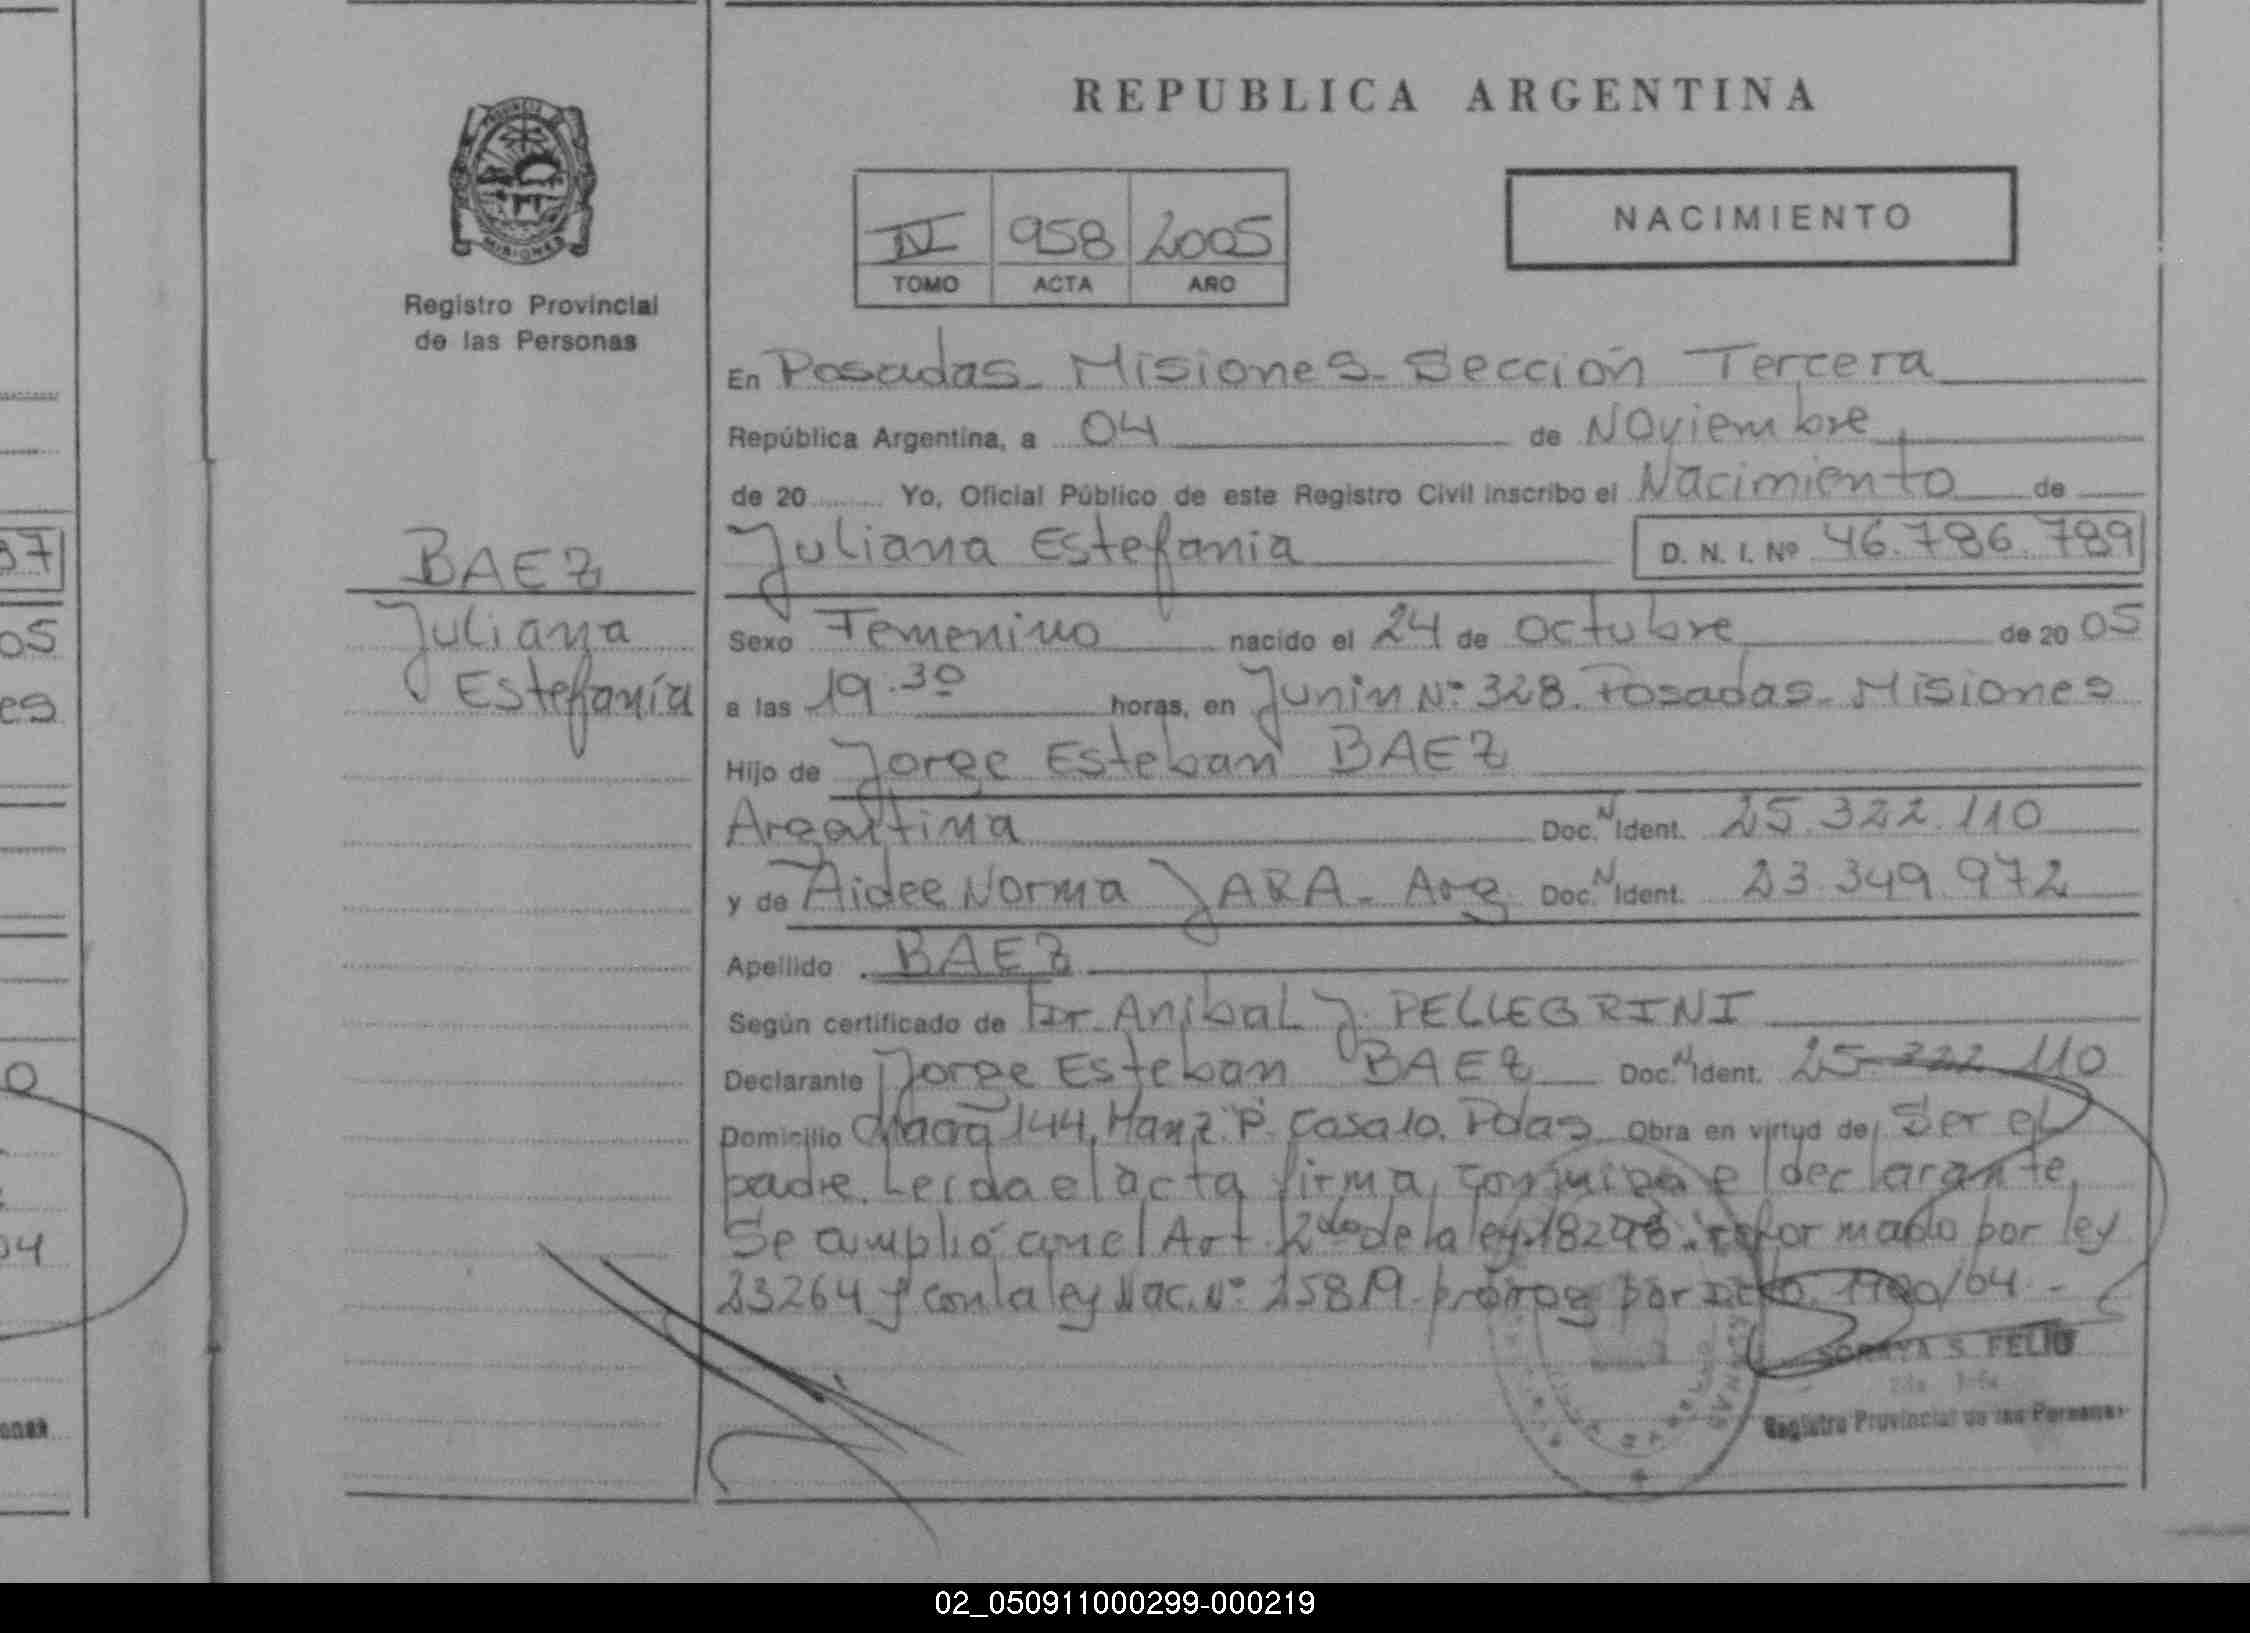 REPUBLICA ARGENTINA
PROVINCIA
MISIONES
Registro Provincial
de las Personas
IV 958 2005
TOMO ACTA AÑO
NACIMIENTO
En Posadas - Misiones - Sección Tercera
República Argentina, a 04 de Noviembre
de 20 Yo, Oficial Público de este Registro Civil inscribo el Nacimiento de
BAEZ
Juliana
Estefanía
Juliana Estefania D. N. I. Nº 46.786.789
Sexo Femenino nacido el 24 de Octubre de 20 05
a las 19.30 horas, en Junin Nº 328. Posadas - Misiones
Hijo de Jorge Esteban BAEZ
Argentina Doc. N Ident. 25.322.110
y de Aidee Norma JARA - Arg Doc. N Ident. 23.349.972
Apellido BAEZ
Según certificado de Dr. Anibal J. PELLEGRINI
Declarante Jorge Esteban BAEZ Doc. N Ident. 25.322.110
Domicilio Chacra 144, Manz. P. Casa 10. Pdas Obra en virtud de Ser el
padre. Leida el acta firma, conmigo el declarante.
Se amplió que el Art. 2do de la ley 18248 reformado por ley
23264 y con la ley Nac. Nº 25819 - prorrog por 1900/04 -
SORAYA S. FELIU
Registro Provincial de las Personas
37
05
es
0
04
onas
02_050911000299-000219